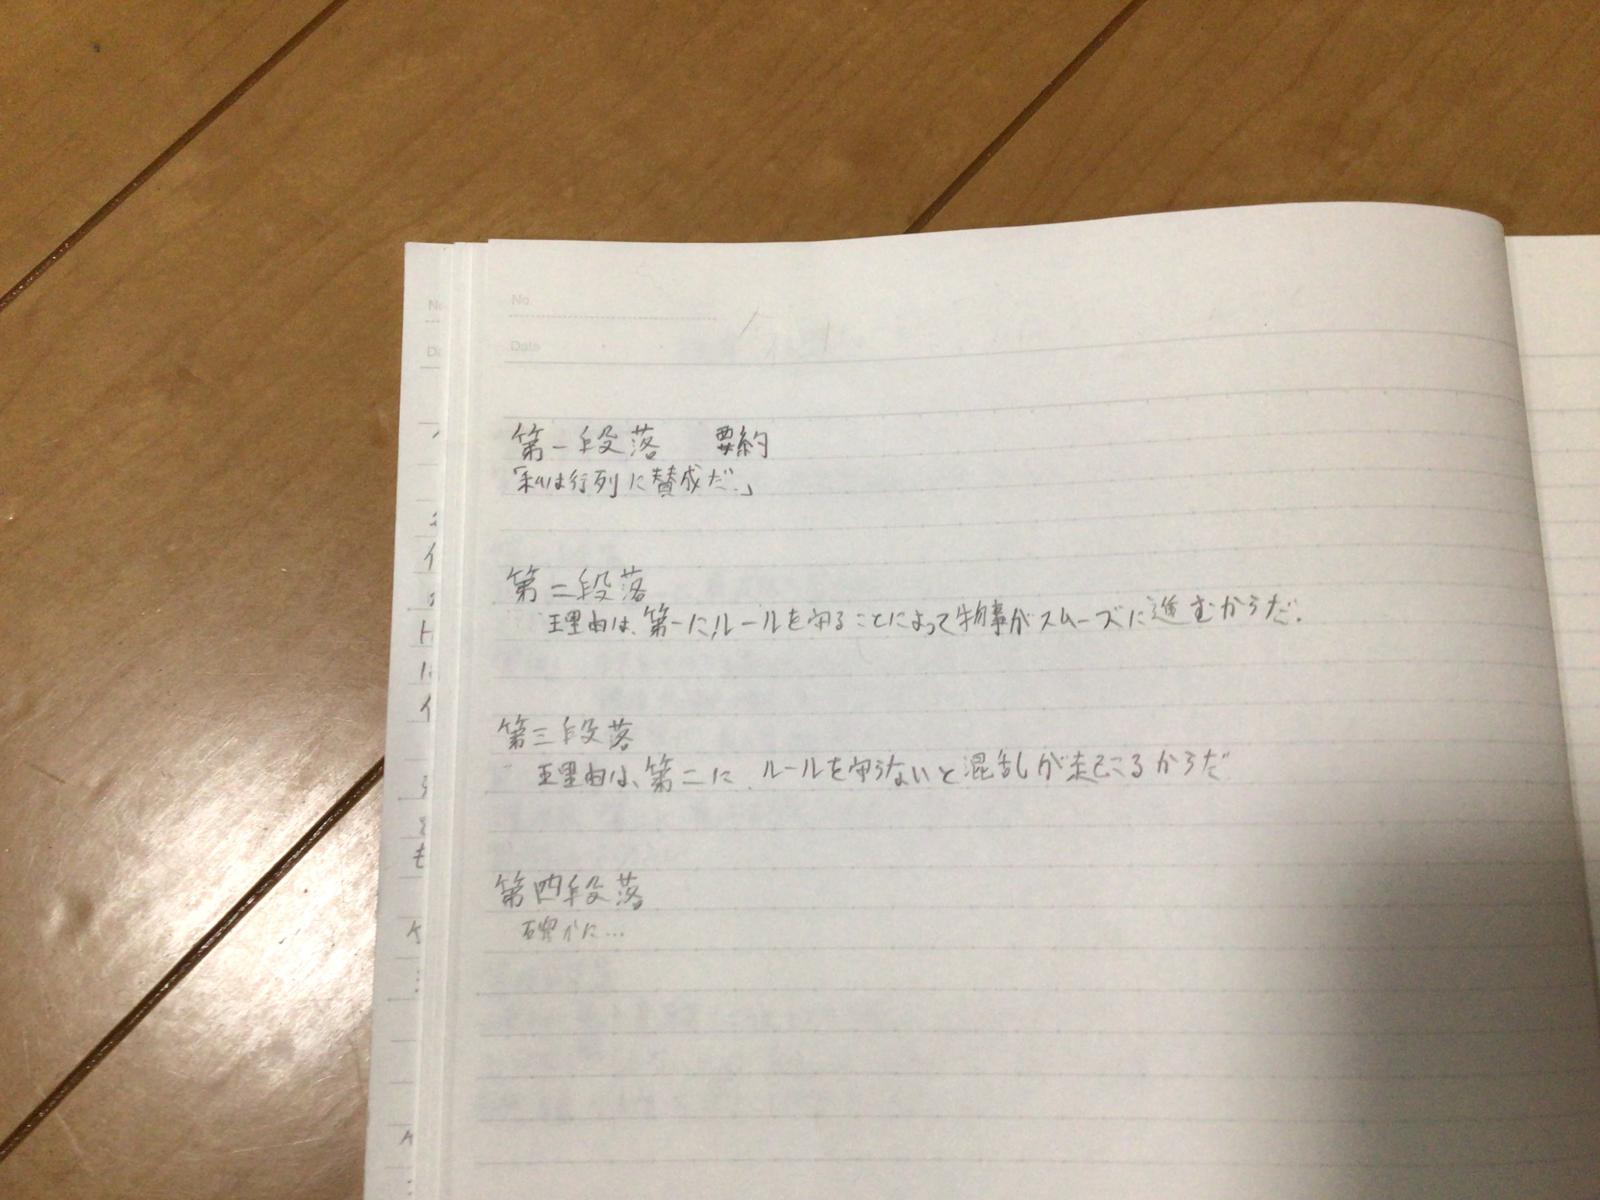 No.
Date
第一段落 要約
「私は行列に賛成だ。」
第二段落
理由は、第一に、ルールを守ることによって物事がスムーズに進むからだ。
第三段落
理由は、第二に、ルールを守らないと混乱が起こるからだ
第四段落
確かに…